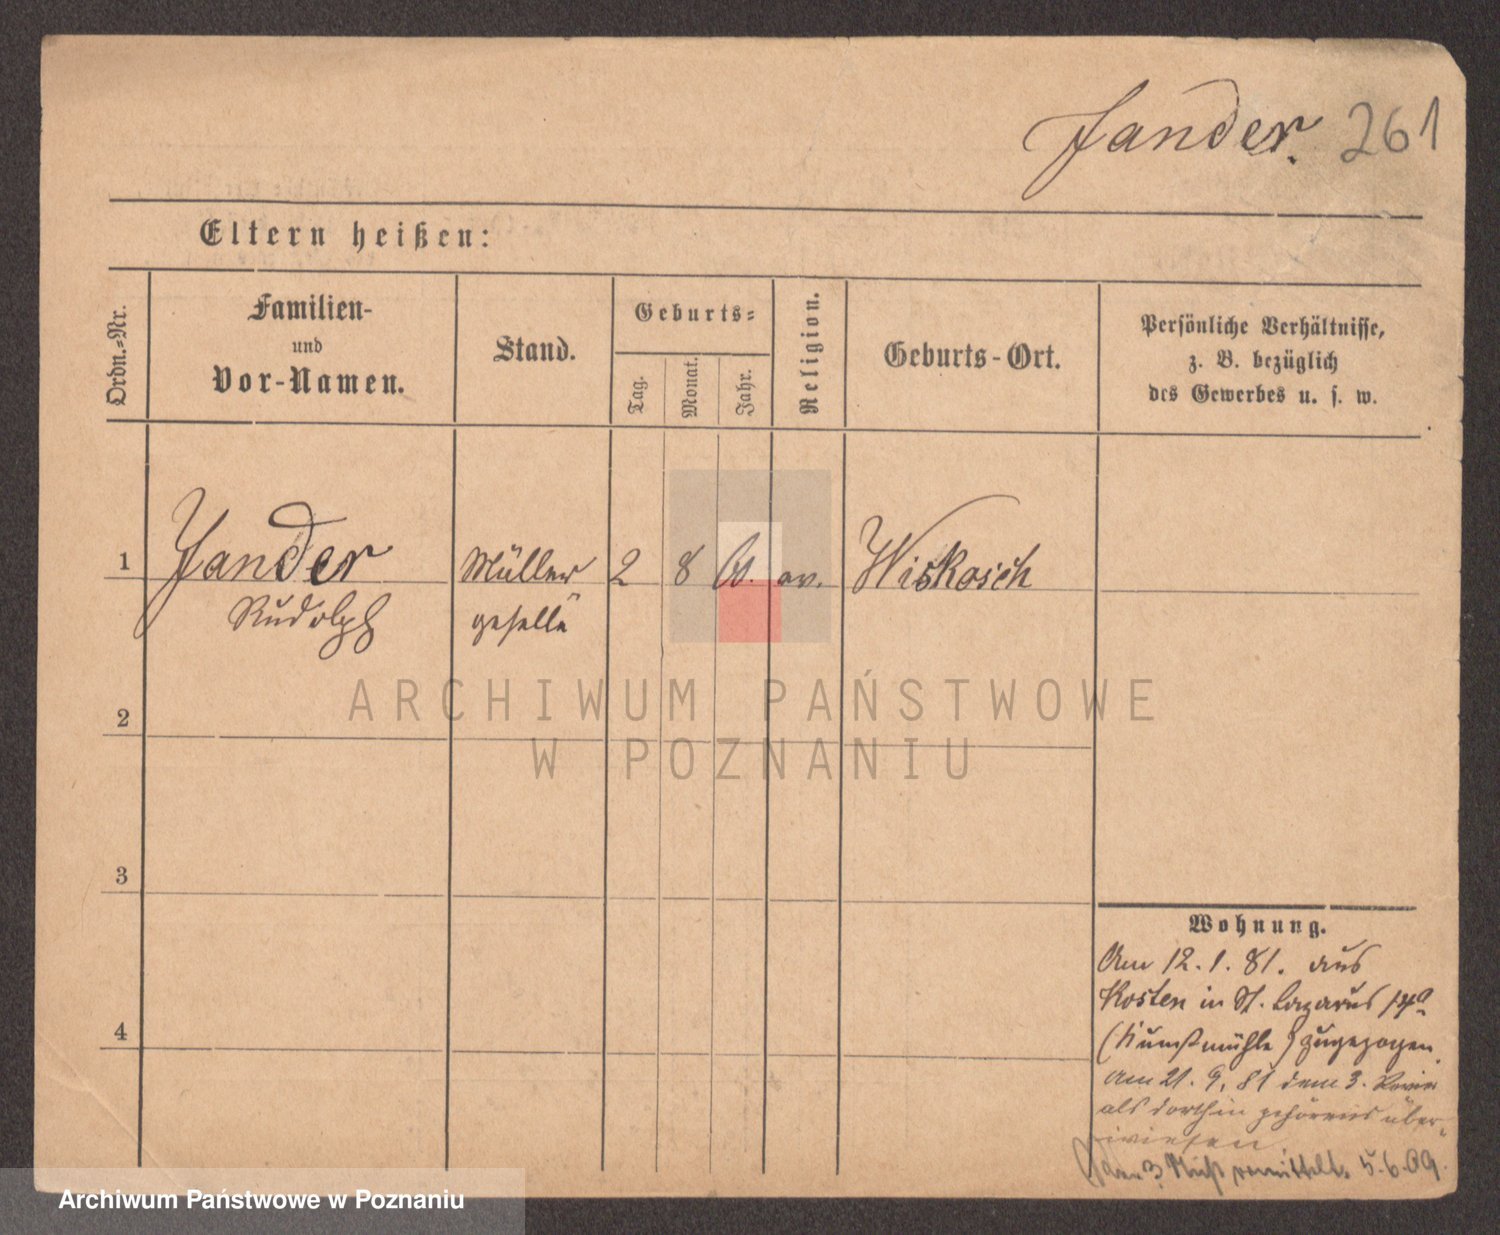 Jander. 261
Eltern heißen:
Ordn.-Nr.
Familien-
und
Vor-Namen.
Stand.
Geburts-
Tag.
Monat.
Jahr.
Religion.
Geburts-Ort.
Persönliche Verhältnisse,
z. B. bezüglich
des Gewerbes u. s. w.
1
Jander
Rudolph
Müller
geselle
2
8
ev.
Wiskosch
2
3
4
Wohnung.
Am 12.1.81. aus
Kosten in St. Lazarus
(Kunstmühle) zugezogen.
Am 21.9.81 dem 3. Revier
als dorthin gehörend über-
wiesen
3. Nicht ermittelt. 5.6.09.
ARCHIWUM PAŃSTWOWE
W POZNANIU
Archiwum Państwowe w Poznaniu